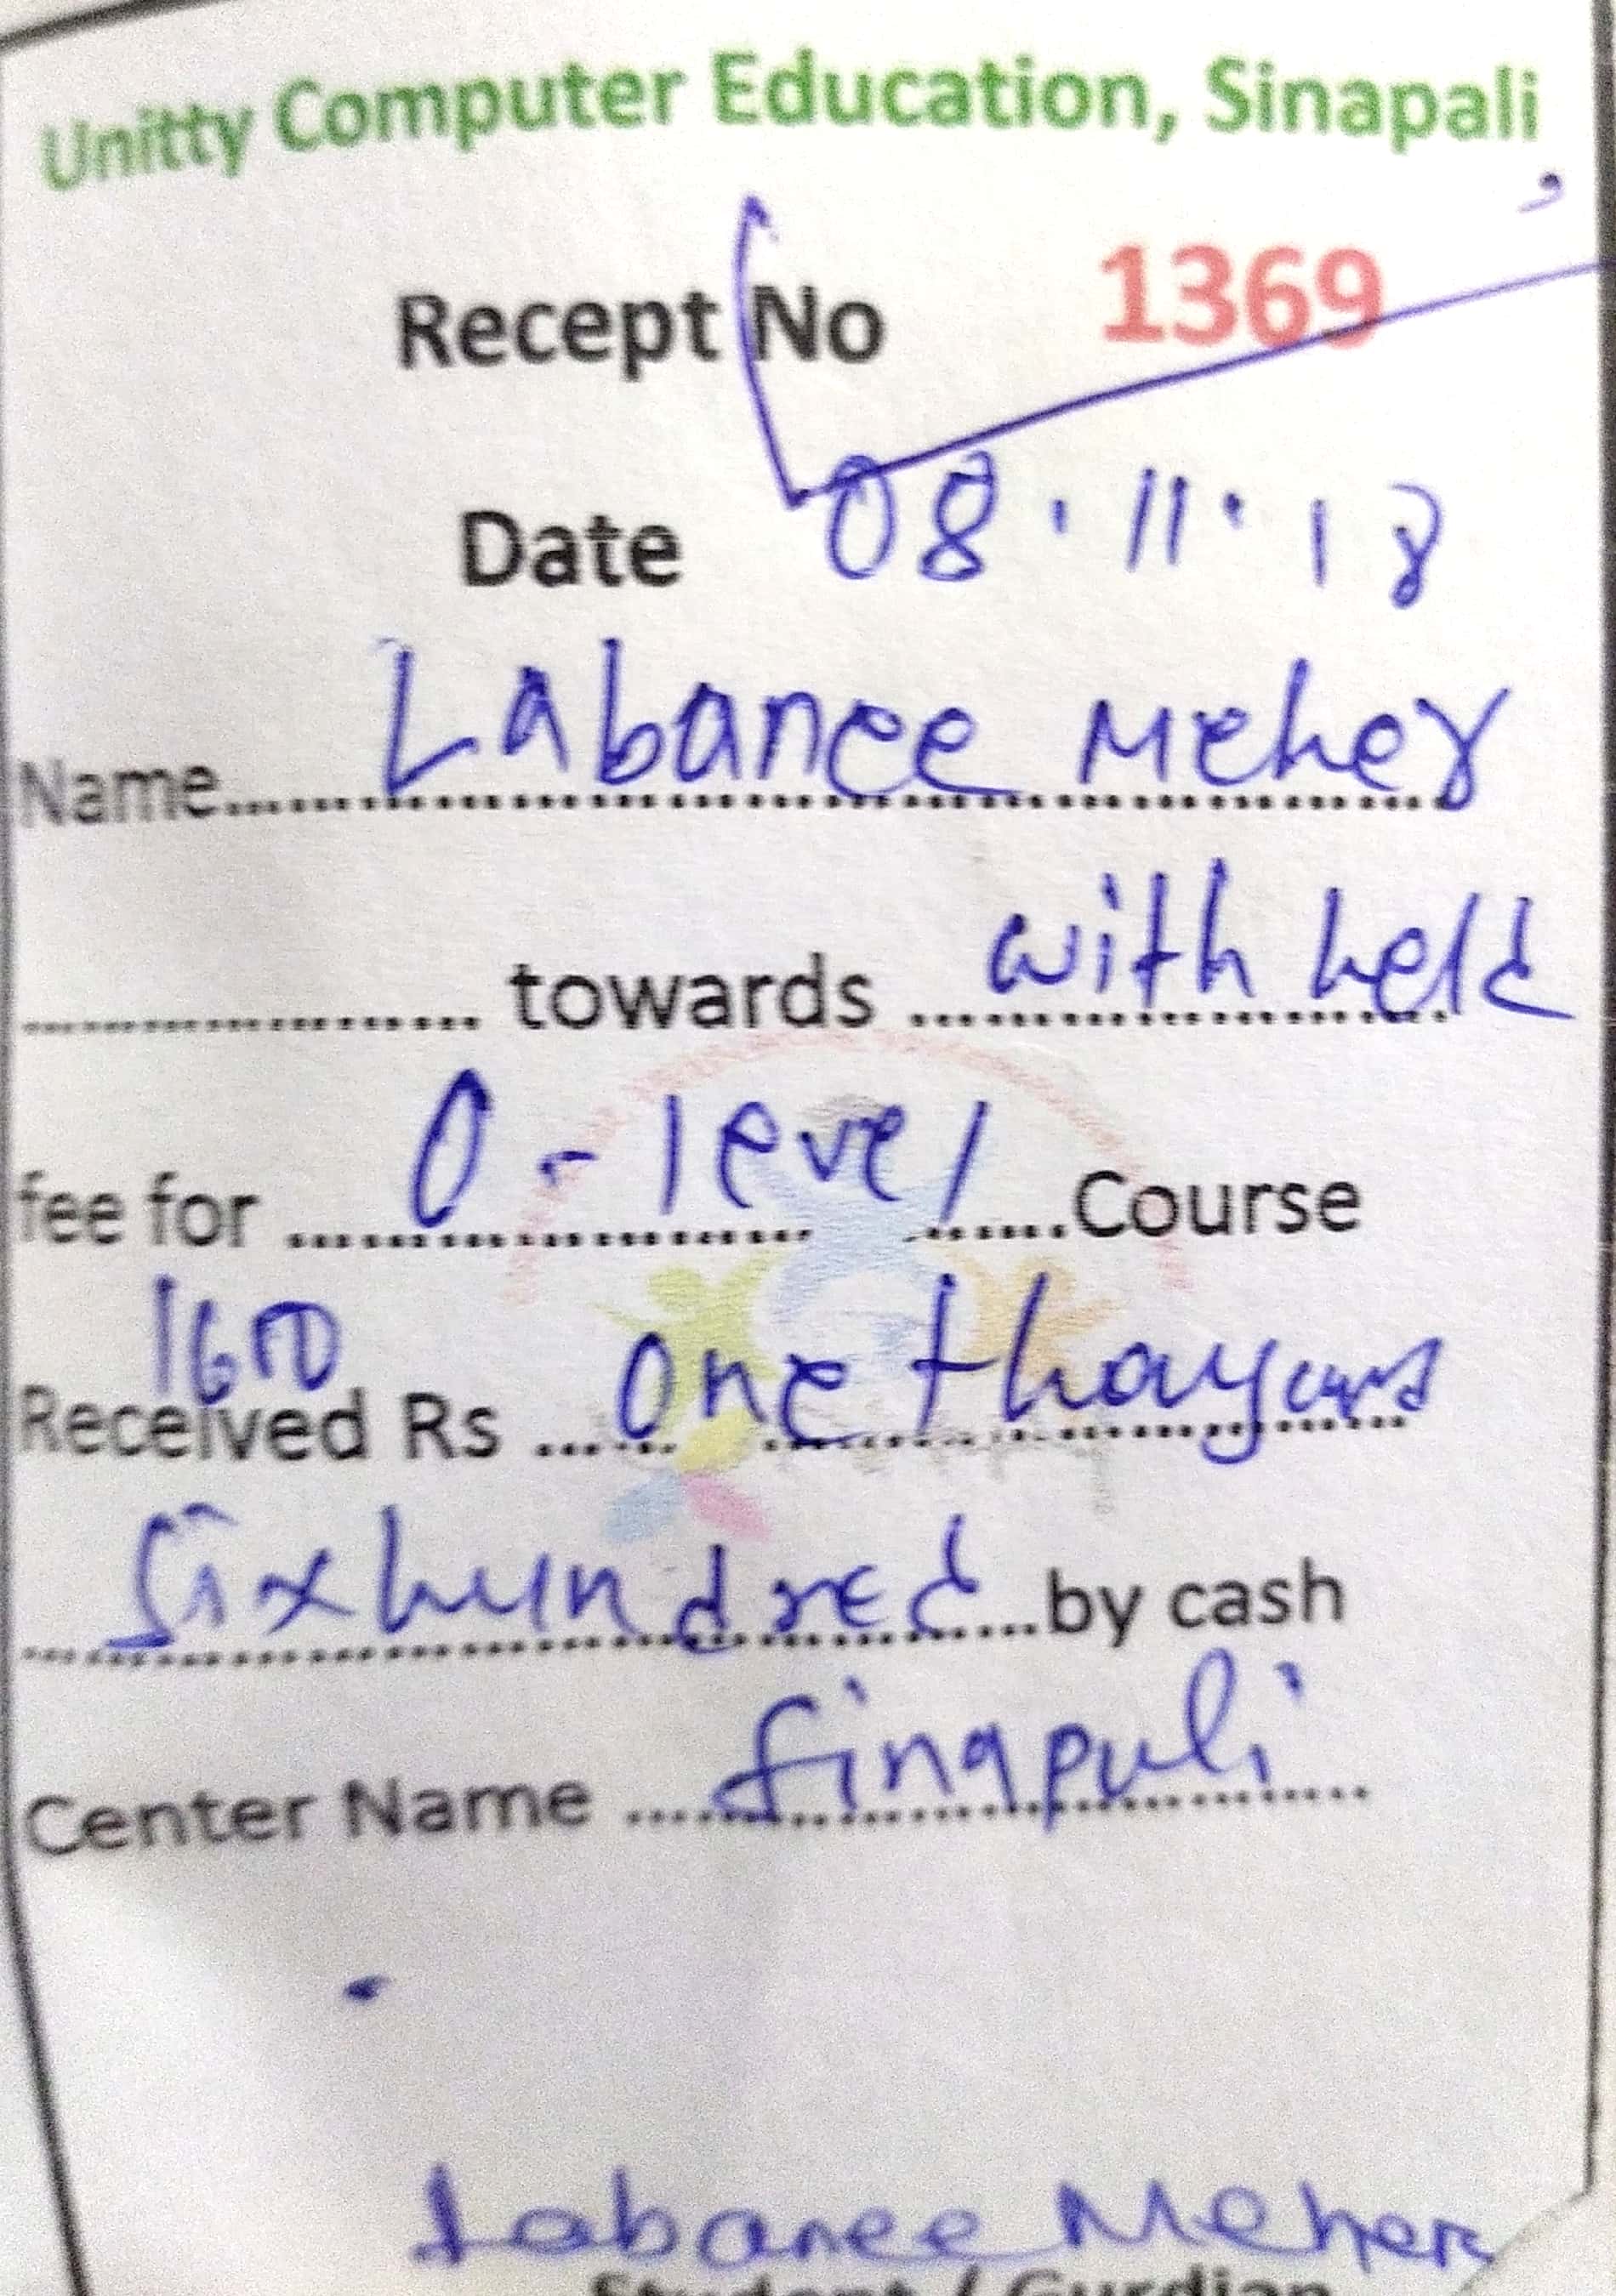 Unitty Computer Education, Sinapali
Recept No 1369
Date 08.11.18
Name........ Labanee Meher
............ towards with held
fee for O-level Course
1600
Received Rs one thousand
Six hundred by cash
Center Name Sinapali
Labanee Meher
Student / Gurdian